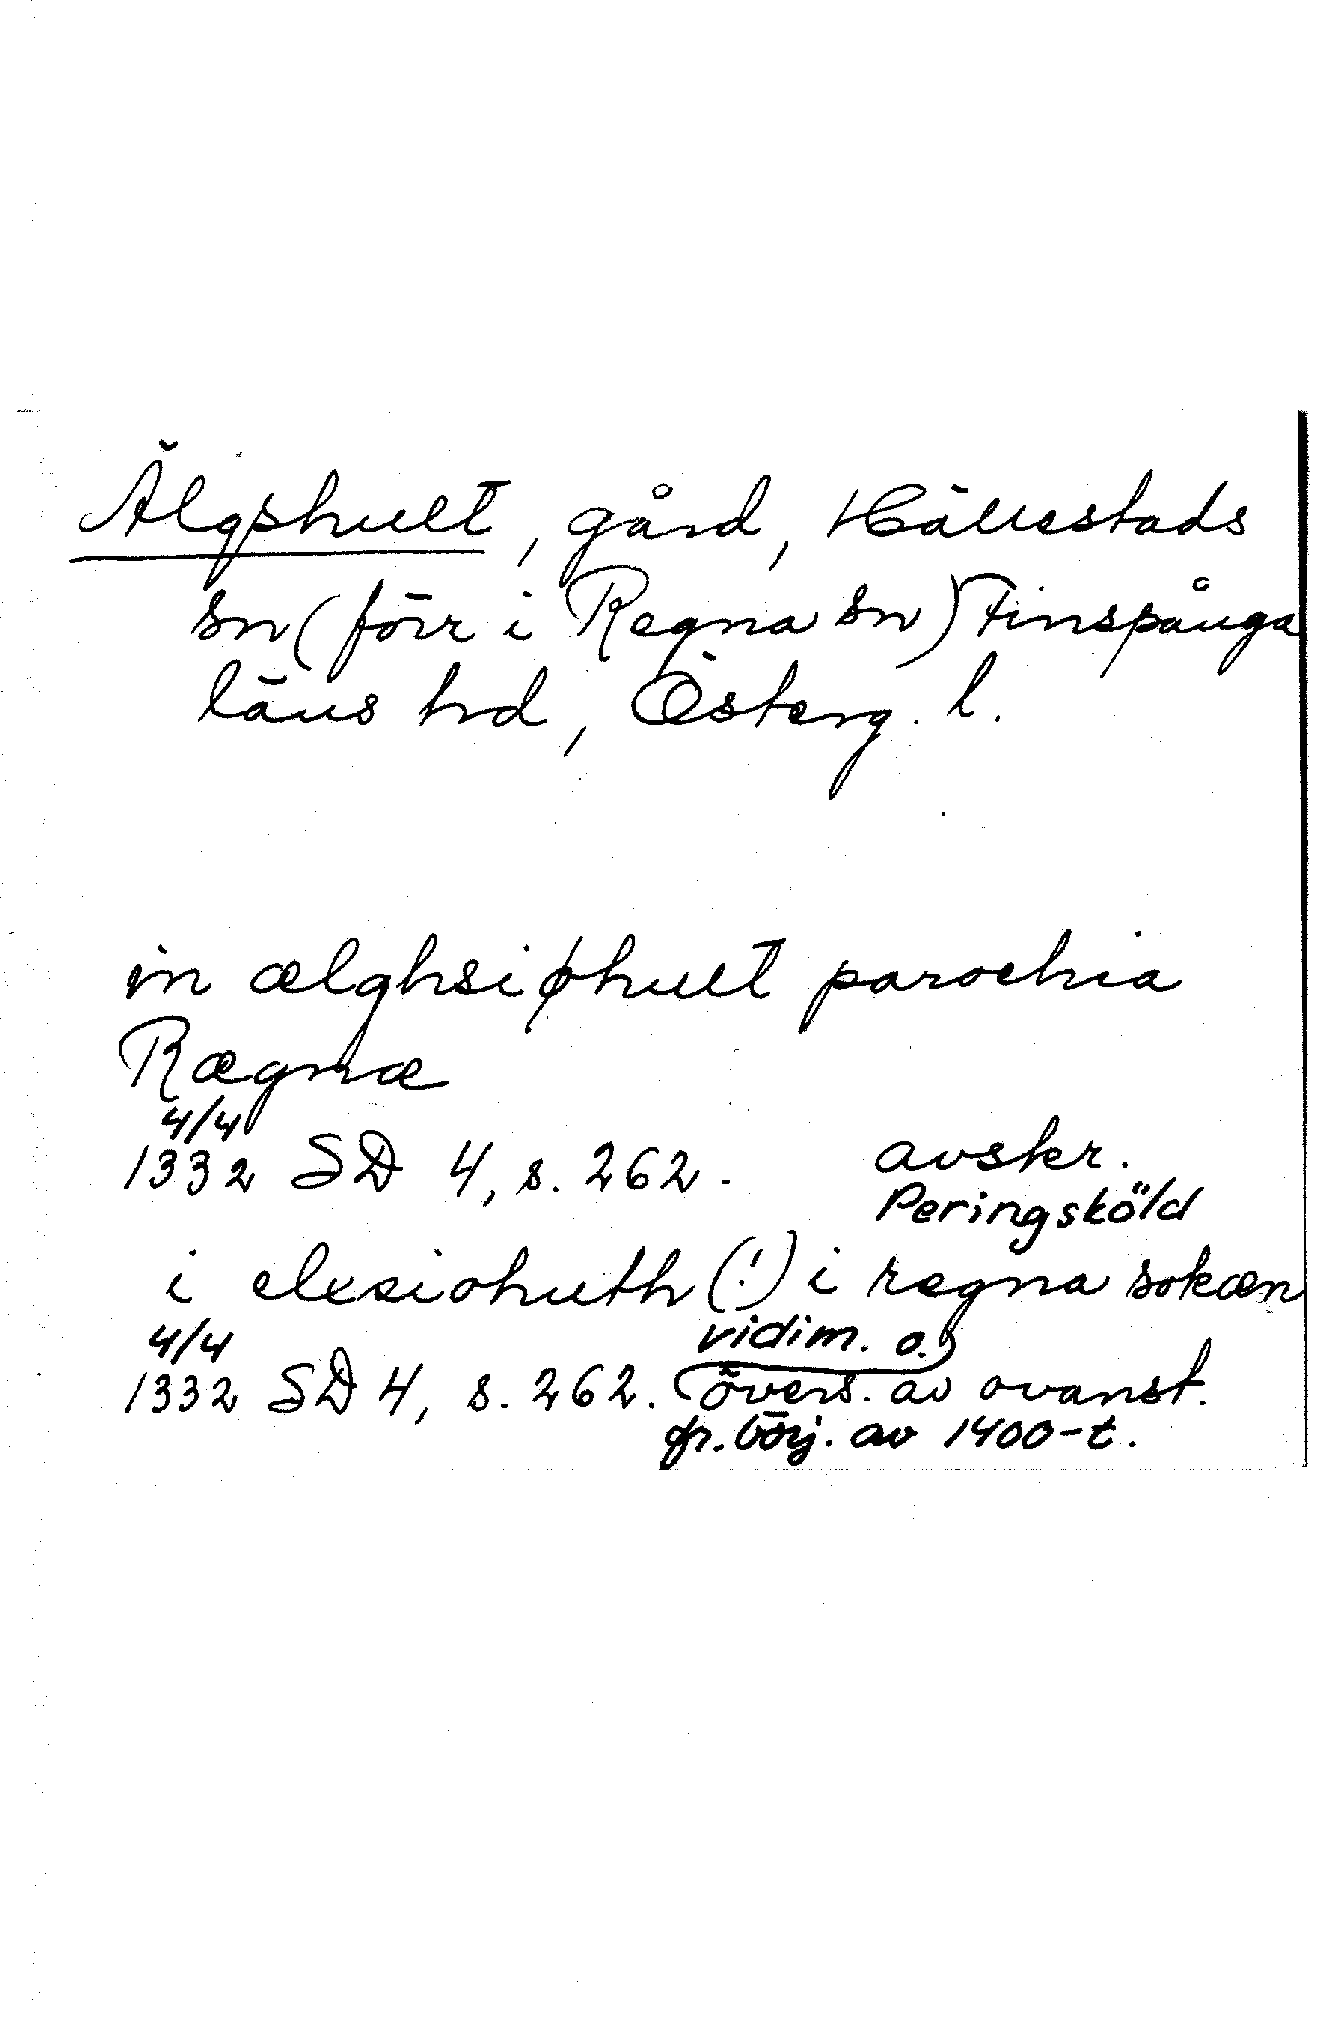 Älgshult, gård, Hällestads
sn (förr i Regna sn) Finspånga
läns hd, Österg. l.
in ælghsiøhult parochia
Rægnæ
4/4
1332 SD 4, s. 262. avskr.
Peringsköld
i elexiohuth (!) i regna sokæn
4/4 vidim. o.
1332 SD 4, s. 262. övers. av ovanst.
fr. börj. av 1400-t.